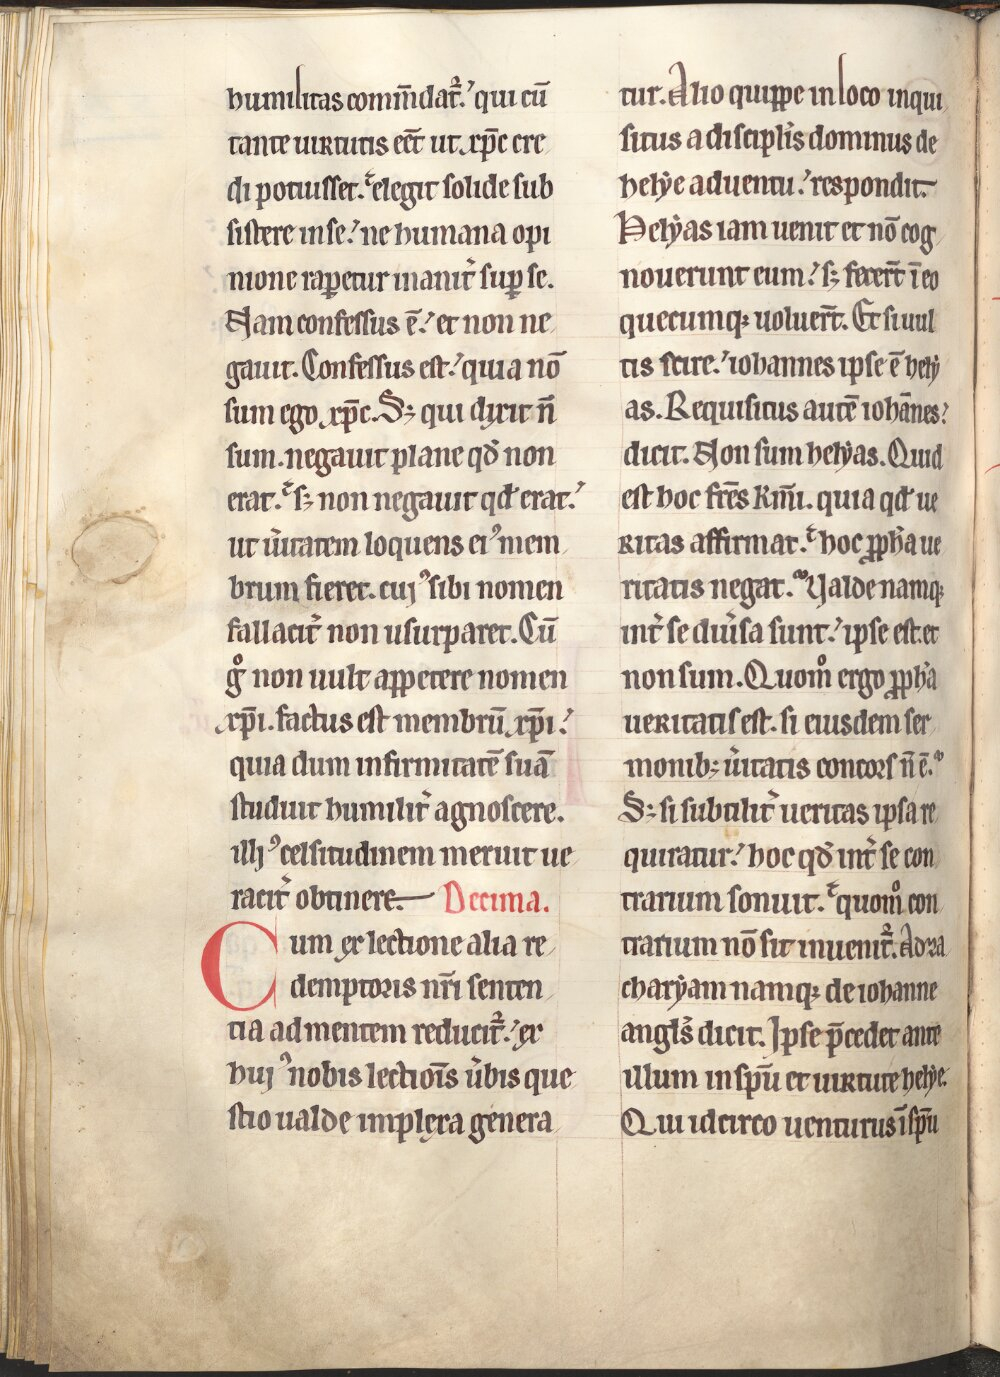 humilitas com̄ndat᷑. qui cū
tante uirtutis eēt ut xp̄c cre
di potuisset. elegit solide sub
sistere in se. ne humana opi
nione raperetur inanit᷑ sup se.
Nam confessus ē. et non ne
gauit. Confessus est. quia nō
sum ego xp̄c. Sꝫ qui dixit n̄
sum. negauit plane qđ non
erat. sꝫ non negauit qđ erat.
ut u᷑itatem loquens eiꝰ mem
brum fieret. cuiꝰ sibi nomen
fallacit᷑ non usurparet. Cū
gͦ non uult appetere nomen
xp̄i. factus est membrū xp̄i.
quia dum infirmitatē suā
studuit humilit᷑ agnoscere.
illiꝰ celsitudinem meruit ue
racit᷑ obtinere. Decima.
Cum ex lectione alia re
demptoris nr̄i senten
tia ad mentem reducit᷑. ex
huiꝰ nobis lectiōis u᷑bis que
stio ualde implexa genera
tur. Alio quippe in loco inqui
situs a discipl̄is dominus de
helye aduentu. respondit.
Helyas iam uenit et nō cog
nouerunt eum. sꝫ fecer̄t ī eo
quecumqꝫ uoluer̄t. Et si uul
tis scire. iohannes ipse ē hely
as. Requisitus autē iohānes.
dicit. Non sum helyas. Quid
est hoc fr̄es km̄i. quia qđ ue
ritas affirmat. hoc ꝓph̄a ue
ritatis negat. Valde namqꝫ
int᷑ se diu᷑sa sunt. ipse est. et
non sum. Quomͦ ergo ꝓph̄a
ueritatis est. si eiusdem ser
monibꝫ u᷑itatis concors n̄ ē.
Sꝫ si subtilit᷑ ueritas ipsa re
quiratur. hoc qđ int᷑ se con
trarium sonuit. quomͦ con
trarium nō sit inuenit᷑. Ad za
charyam namqꝫ de iohanne
angl̄s dicit. Ipse p̄cedet ante
illum in sp̄u et uirtute helye.
Qui idcirco uenturus ī sp̄u